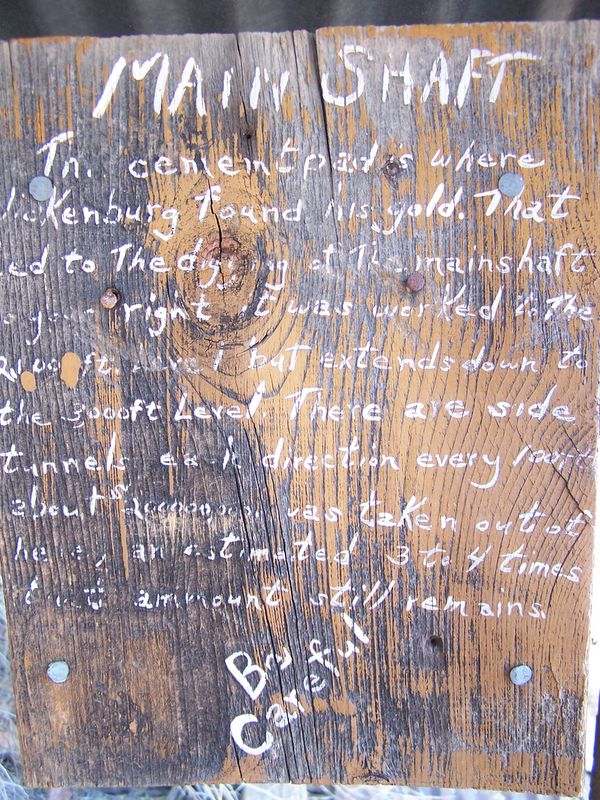 MAIN SHAFT
cement pad is where
ickenburg found his gold. That
ed to The digging of The mainshaft
right it was worked to The
ft. Level but extends down to
the 3000ft Level There are side
tunnels each direction every 100ft
about $ was taken out of
here, an estimated 3 to 4 times
ammount still remains.
Be
Careful